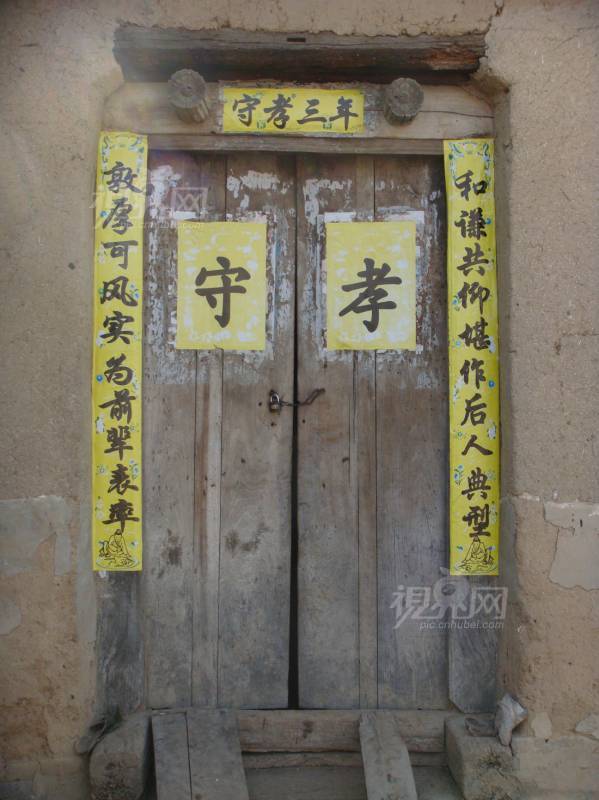 守孝三年
敦厚可风实为前辈表率
守
孝
和谦共仰堪作后人典型
視界网
pic.cnhubei.com